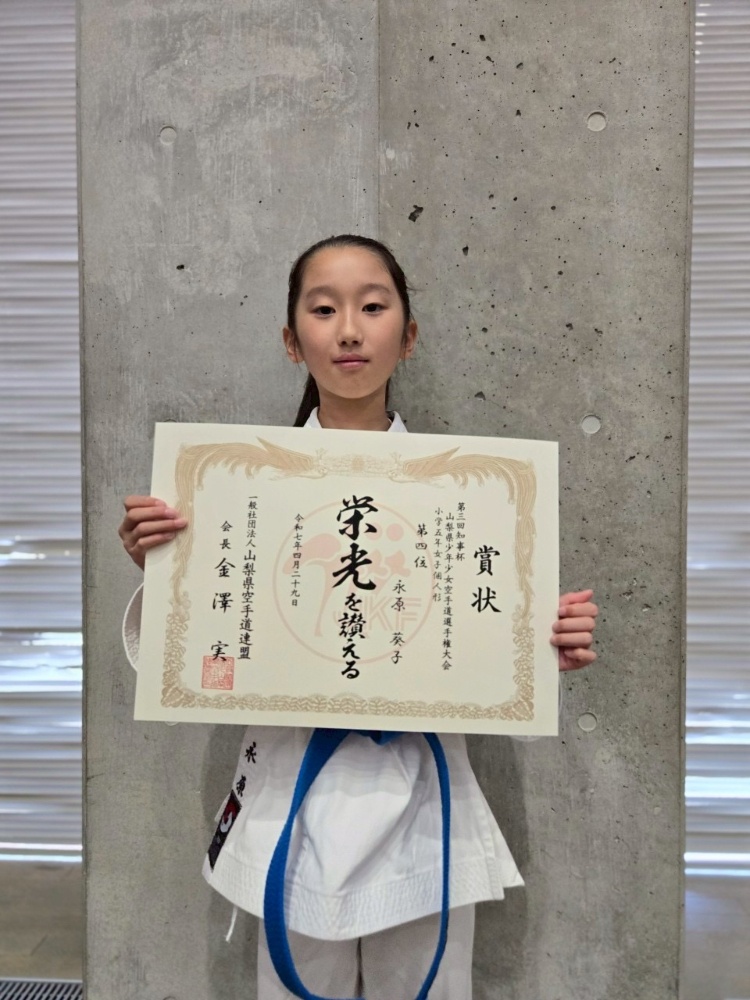 賞状
第三回知事杯
山梨県少年少女空手道選手権大会
小学五年女子個人形
第四位
永原 葵子
栄光を讃える
令和七年四月二十九日
一般社団法人山梨県空手道連盟
会長 金澤 実
永原